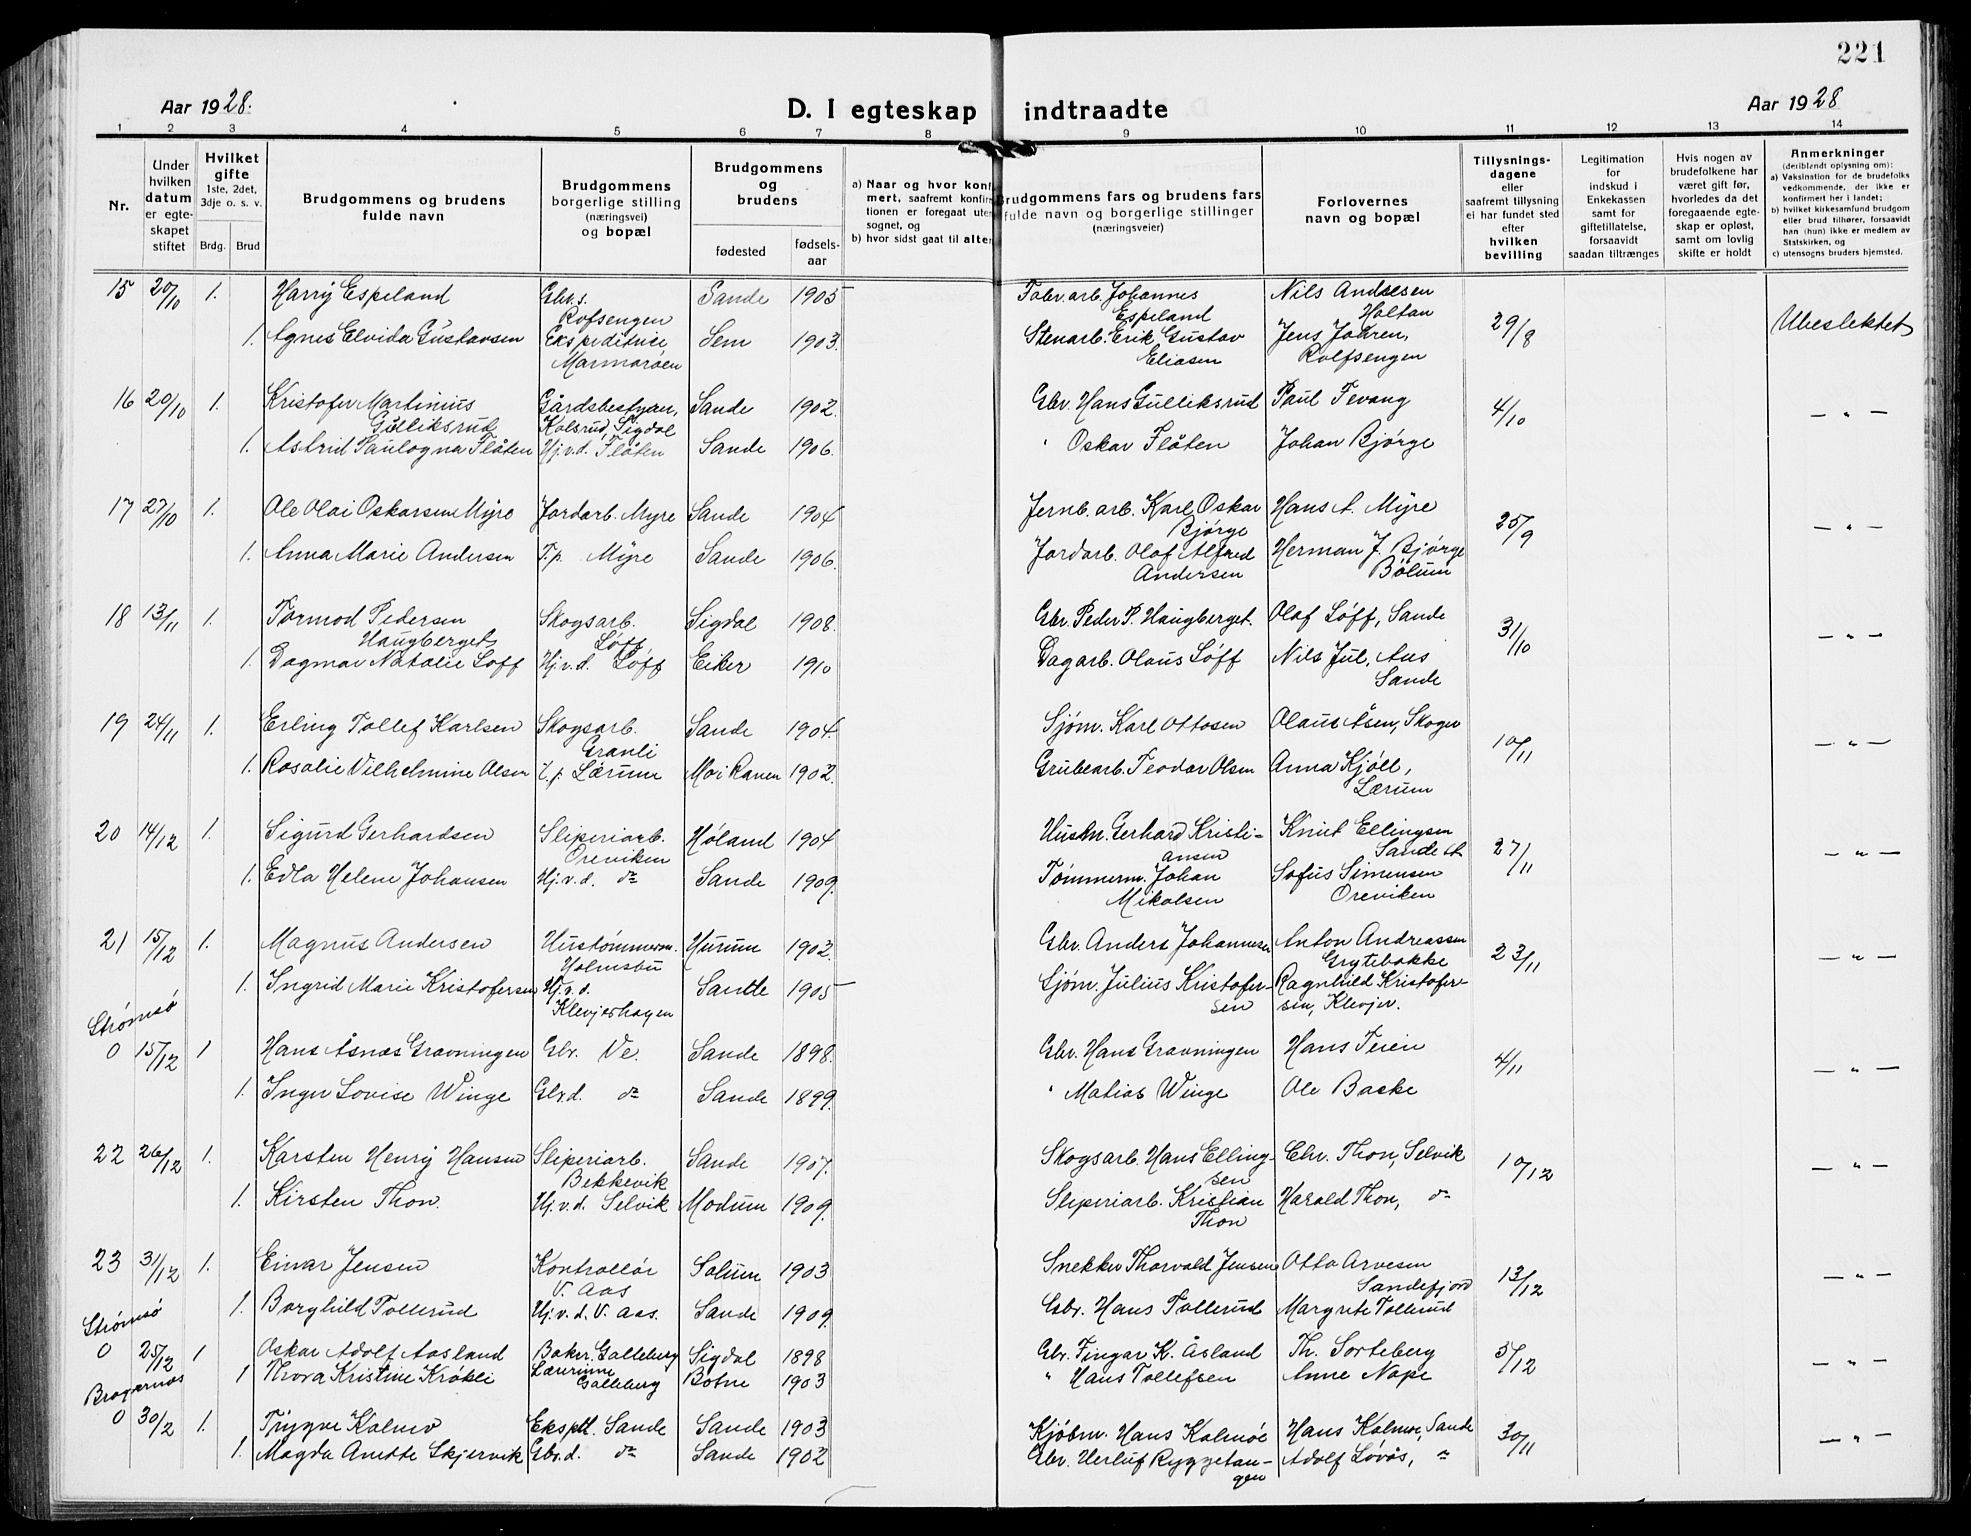 221
Aar 1928.
D. I egteskap indtraadte
Aar 1928
1 2 3 4 5 6 7 8 9 10 11 12 13 14
Nr.
Under hvilken datum er egteskapet stiftet
Hvilket gifte 1ste, 2det, 3dje o. s. v.
Brdg. Brud
Brudgommens og brudens fulde navn
Brudgommens borgerlige stilling (næringsvei) og bopæl
Brudgommens og brudens
fødested
fødsels-aar
a) Naar og hvor konf
mert, saafremt konfir
tionen er foregaat uten
sognet, og
b) hvor sidst gaat til alter
Brudgommens fars og brudens fars fulde navn og borgerlige stillinger (næringsveier)
Forlovernes navn og bopæl
Tillysnings-dagene eller saafremt tillysning ei har fundet sted efter hvilken bevilling
Legitimation for indskud i Enkekassen samt for giftetillatelse, forsaavidt saadan tiltrænges
Hvis nogen av brudefolkene har været gift før, hvorledes da det foregaaende egteskap er opløst, samt om lovlig skifte er holdt
Anmerkninger
(deriblandt oplysning om):
a) Vaksination for de brudefolks vedkommende, der ikke er konfirmert her i landet;
b) hvilket kirkesamfund brudgom eller brud tilhører, forsaavidt han (hun) ikke er medlem av Statskirken, og
c) utensogns bruders hjemsted.
15 20/10 1. Harry Espeland Gbr.s. Rofsengen Sande 1905 Fabr.arb. Johannes Espeland Nils Andresen Holtan 29/8 Ubeslektet
1. Agnes Elvida Gustavsen Ekspeditrise Marmorøen Sem 1903. Stenarb. Erik Gustav Eliasen Jens Joåren, Rolfsengen
16 20/10 1. Kristofer Martinius Gulliksrud Gårdsbestyrer, Kolsrud, Sigdal Sande 1902. Gbr. Hans Gulliksrud Paul Tevang 4/10 — " —
1. Astrid Paulogna Flåten Hj.v.d. Flåten Sande 1906. " Oskar Flåten Johan Bjørge
17 27/10 1. Ole Olai Oskarsen Myre Jordarb. Myre Sande 1904 Jernb.arb. Karl Oskar Bjørge Hans A. Myre 25/9 — " —
1. Anna Marie Andersen T.p. Myre Sande 1906. Jordarb. Olaf Alfred Andersen Herman J. Bjørge Bølum
18 13/11 1. Tormod Pedersen Haugberget Skogsarb. Løff Sigdal 1908. Gbr. Peder P. Haugberget. Olaf Løff, Sande 31/10 — " —
1. Dagmar Natalie Løff Hj.v.d. Løff Eiker 1910 Dagarb. Olaus Løff Nils Jul, Aus Sande
19 24/11 1. Erling Tollef Karlsen Skogsarb. Granli Sande 1904. Sjøm. Karl Ottosen Olaus Åsen, Skoger 10/11 — " —
1. Rosalie Vilhelmine Olsen T.p. Lærum Moi Ranen 1902. Grubearb. Teodor Olsen Anna Kjøll, Lærum
20 14/12 1. Sigurd Gerhardsen Sliperiarb. Oreviken Høland 1904 Husm. Gerhard Kristiansen Knut Ellingsen Sande st 27/11 — " —
1. Edla Helene Johansen Hj.v.d. do Sande 1909. Tømmerm. Johan Mikalsen Sofus Simensen Oreviken
21 15/12 1. Magnus Andersen Hustømmerm. Holmsbu Hurum 1902. Gbr. Anders Johannesen Anton Andreassen Grytebakke 23/11 — " —
1. Ingrid Marie Kristofersen Hj.v.d. Klevjerhagen Sande 1905 Sjøm. Julius Kristofersen Ragnhild Kristofersen, Klevjer.
Strømsø
0 15/12 1 Hans Åsnæs Gravningen Gbr. Ve. Sande 1898. Gbr. Hans Gravningen Hans Teien 4/11 — " —
1. Inger Lovise Winge Gbr.d. do Sande 1899. " Matias Winge Ole Baske
22 26/12 1. Karsten Henry Hansen Sliperiarb. Bekkevik Sande 1907. Skogsarb. Hans Ellingsen Chr. Thon, Selvik 10/12 — " —
1. Kirsten Thon. Hj.v.d. Selvik Modum 1909. Sliperiarb. Kristian Thon Harald Thon, do
23 31/12 1. Einar Jensen Kontrollør V. Aas Solum 1903 Snekker Thorvald Jensen Otto Arvesen Sandefjord 13/12 — " —
1. Borghild Tollerud Hj.v.d. V. Aas. Sande 1909. Gbr. Hans Tollerud Margrete Tollerud
Strømsø
0 25/12 1 Oskar Adolf Aasland Baker. Galleberg Sigdal 1898 Gbr. Fingar K. Åsland Th. Sorteberg 5/12 — " —
1 Thora Kristine Krøkli Lærerinne Galleberg Botne 1903 " Hans Tollefsen Anne Nape
Bragernæs
0 30/2 1. Trygve Kalmo Ekspdt. Sande Sande 1903 Kjøbm. Hans Kalmoe Hans Kalmoe, Sande 30/11 — " —
1. Magda Anette Skjervik Gbr.d. do Sande 1902 Gbr. Herluf Ryggetangen Adolf Løvås, "